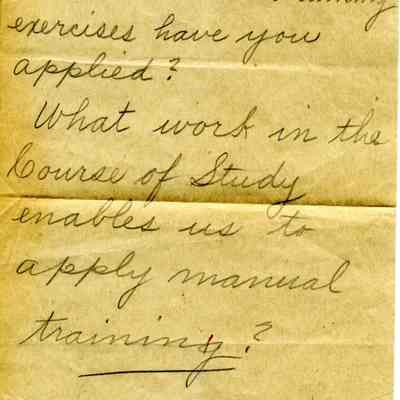 training
exercises have you
applied?
What work in the
Course of Study
enables us to
apply manual
training?